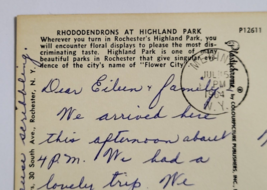 RHODODENDRONS AT HIGHLAND PARK
Wherever you turn in Rochester's Highland Park, you
will encounter floral displays to please the most dis-
criminating taste. Highland Park is one of many
beautiful parks in Rochester that give singular
dence of the city's name of "Flower City"
P12611
PM
N.Y.
Dear Eileen & family
We arrived here
this afternoon about
4 P.M. We had a
lovely trip We
scribbling.
30 South Ave., Rochester, N. Y.